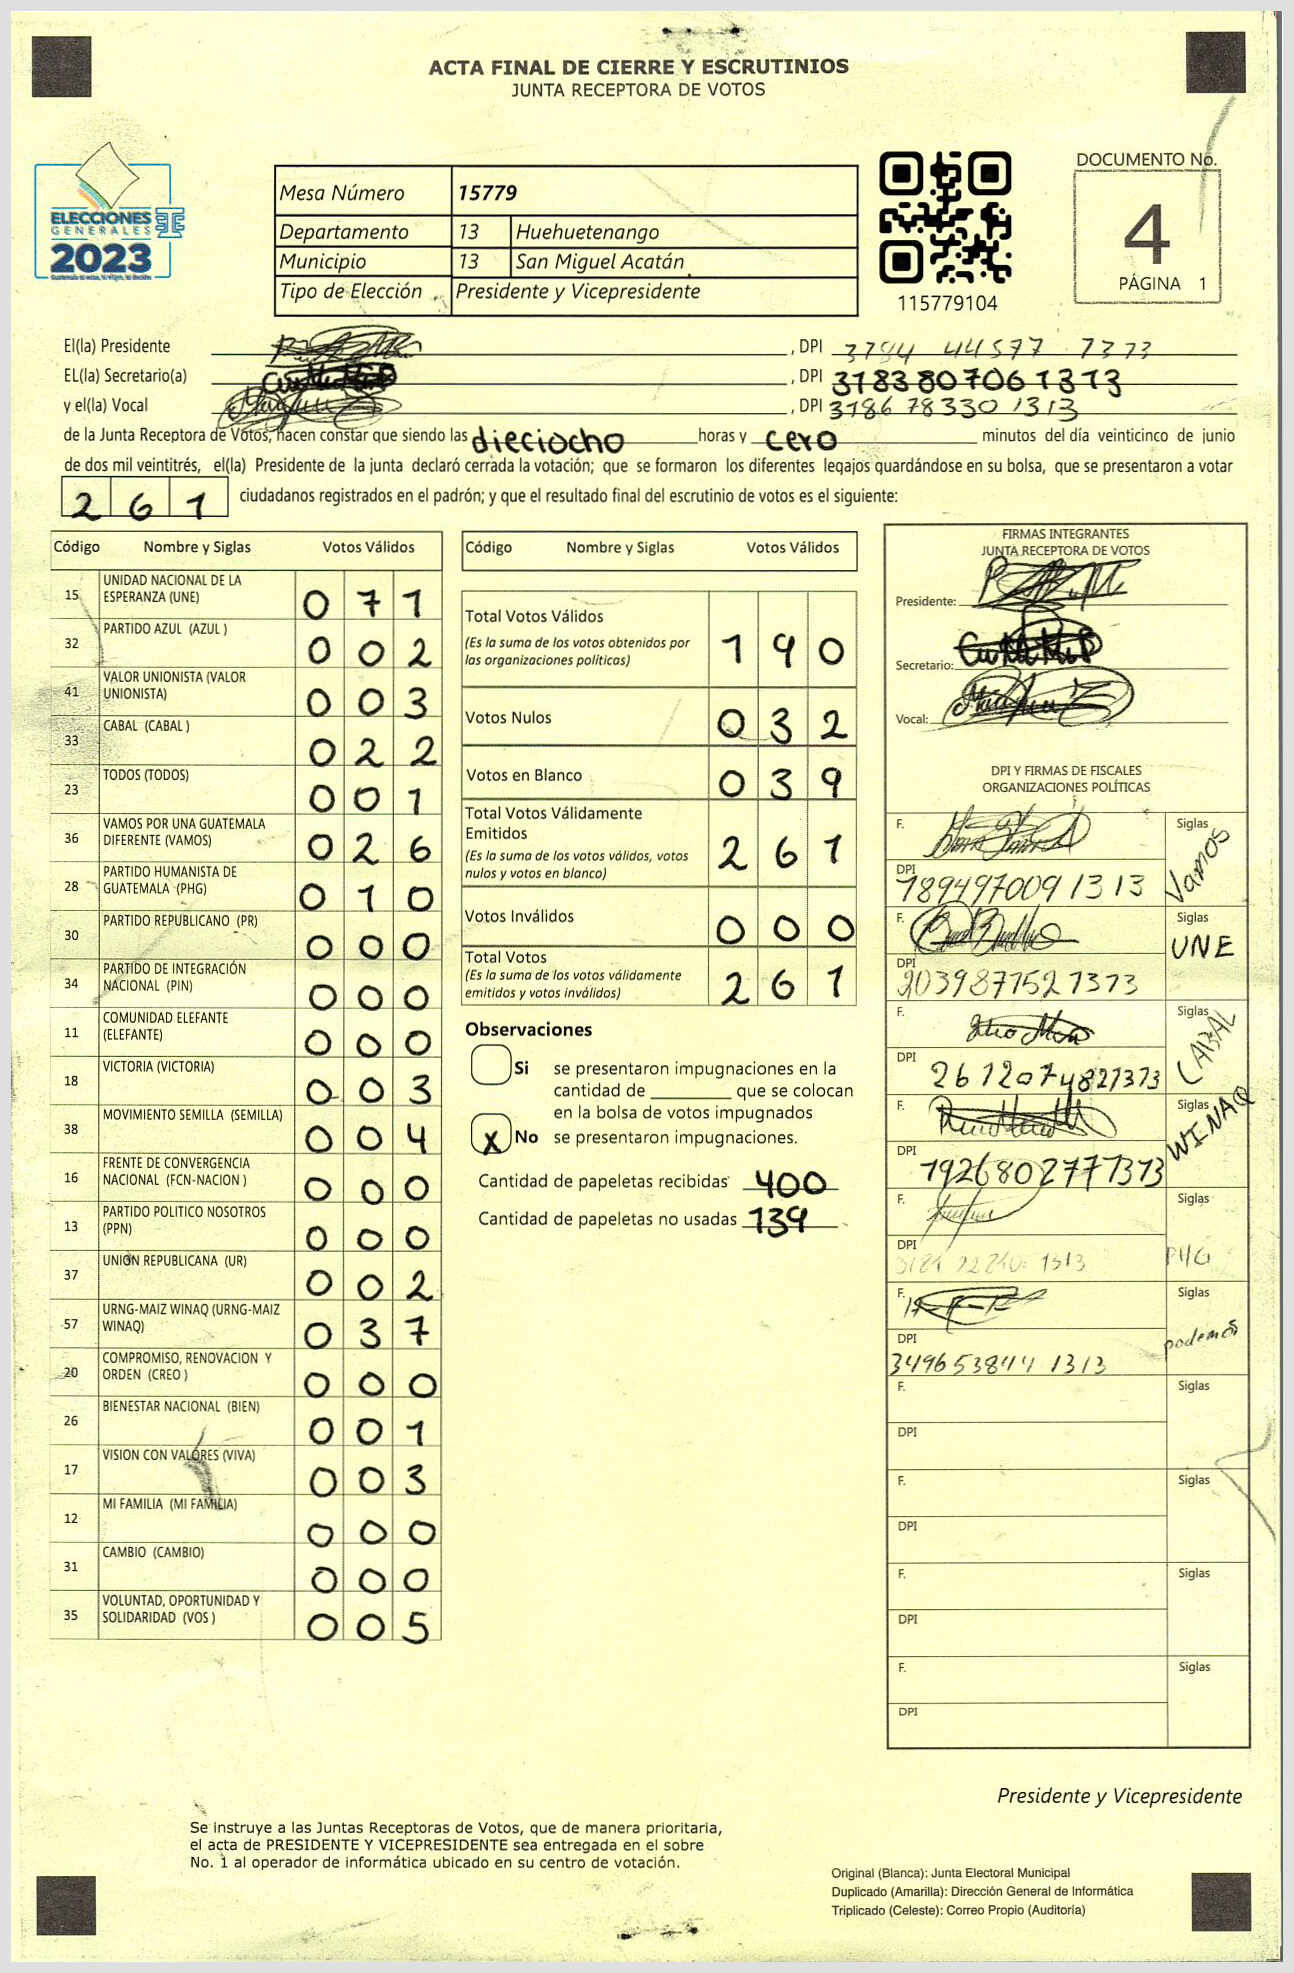 ACTA FINAL DE CIERRE Y ESCRUTINIOS
JUNTA RECEPTORA DE VOTOS
ELECCIONES
GENERALES
2023
Mesa Número 15779
Departamento 13 Huehuetenango
Municipio 13 San Miguel Acatán
Tipo de Elección Presidente y Vicepresidente
115779104
DOCUMENTO No.
4
PÁGINA 1
El(la) Presidente , DPI
EL(la) Secretario(a) , DPI 3183807061313
y el(la) Vocal , DPI 3186 78330 1313
de la Junta Receptora de Votos, hacen constar que siendo las dieciocho horas y cero minutos del día veinticinco de junio
de dos mil veintitrés, el(la) Presidente de la junta declaró cerrada la votación; que se formaron los diferentes legajos quardándose en su bolsa, que se presentaron a votar
261 ciudadanos registrados en el padrón; y que el resultado final del escrutinio de votos es el siguiente:
Código Nombre y Siglas Votos Válidos
15 UNIDAD NACIONAL DE LA ESPERANZA (UNE) 071
32 PARTIDO AZUL (AZUL ) 002
41 VALOR UNIONISTA (VALOR UNIONISTA) 003
33 CABAL (CABAL ) 022
23 TODOS (TODOS) 001
36 VAMOS POR UNA GUATEMALA DIFERENTE (VAMOS) 026
28 PARTIDO HUMANISTA DE GUATEMALA (PHG) 010
30 PARTIDO REPUBLICANO (PR) 000
34 PARTIDO DE INTEGRACIÓN NACIONAL (PIN) 000
11 COMUNIDAD ELEFANTE (ELEFANTE) 000
18 VICTORIA (VICTORIA) 003
38 MOVIMIENTO SEMILLA (SEMILLA) 004
16 FRENTE DE CONVERGENCIA NACIONAL (FCN-NACION ) 000
13 PARTIDO POLITICO NOSOTROS (PPN) 000
37 UNION REPUBLICANA (UR) 002
57 URNG-MAIZ WINAQ (URNG-MAIZ WINAQ) 037
20 COMPROMISO, RENOVACION Y ORDEN (CREO ) 000
26 BIENESTAR NACIONAL (BIEN) 001
17 VISION CON VALORES (VIVA) 003
12 MI FAMILIA (MI FAMILIA) 000
31 CAMBIO (CAMBIO) 000
35 VOLUNTAD, OPORTUNIDAD Y SOLIDARIDAD (VOS ) 005
Código Nombre y Siglas Votos Válidos
Total Votos Válidos 190
(Es la suma de los votos obtenidos por
las organizaciones políticas)
Votos Nulos 032
Votos en Blanco 039
Total Votos Válidamente
Emitidos 261
(Es la suma de los votos válidos, votos
nulos y votos en blanco)
Votos Inválidos 000
Total Votos 261
(Es la suma de los votos válidamente
emitidos y votos inválidos)
Observaciones
Si se presentaron impugnaciones en la
cantidad de ________ que se colocan
en la bolsa de votos impugnados
X No se presentaron impugnaciones.
Cantidad de papeletas recibidas 400
Cantidad de papeletas no usadas 139
FIRMAS INTEGRANTES
JUNTA RECEPTORA DE VOTOS
Presidente:
Secretario:
Vocal:
DPI Y FIRMAS DE FISCALES
ORGANIZACIONES POLÍTICAS
F. Siglas Vamos
DPI 789497009 1313
F. Siglas UNE
DPI 2039877527373
F. Siglas CABAL
DPI 2612074827373
F. Siglas WINAQ
DPI 7926802777373
F. Siglas PHG
DPI
F. Siglas podemos
DPI 349653844 1313
F. Siglas
DPI
F. Siglas
DPI
F. Siglas
DPI
F. Siglas
DPI
Presidente y Vicepresidente
Se instruye a las Juntas Receptoras de Votos, que de manera prioritaria,
el acta de PRESIDENTE Y VICEPRESIDENTE sea entregada en el sobre
No. 1 al operador de informática ubicado en su centro de votación.
Original (Blanca): Junta Electoral Municipal
Duplicado (Amarilla): Dirección General de Informática
Triplicado (Celeste): Correo Propio (Auditoría)